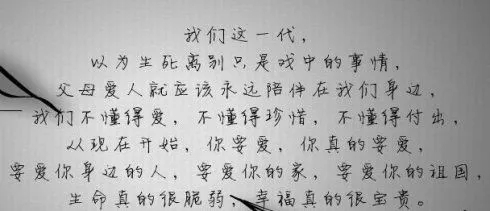 我们这一代，
以为生死离别只是戏中的事情，
父母爱人就应该永远陪伴在我们身边，
我们不懂得爱，不懂得珍惜，不懂得付出，
从现在开始，你要爱，你真的要爱，
要爱你身边的人，要爱你的家，要爱你的祖国，
生命真的很脆弱，幸福真的很宝贵。